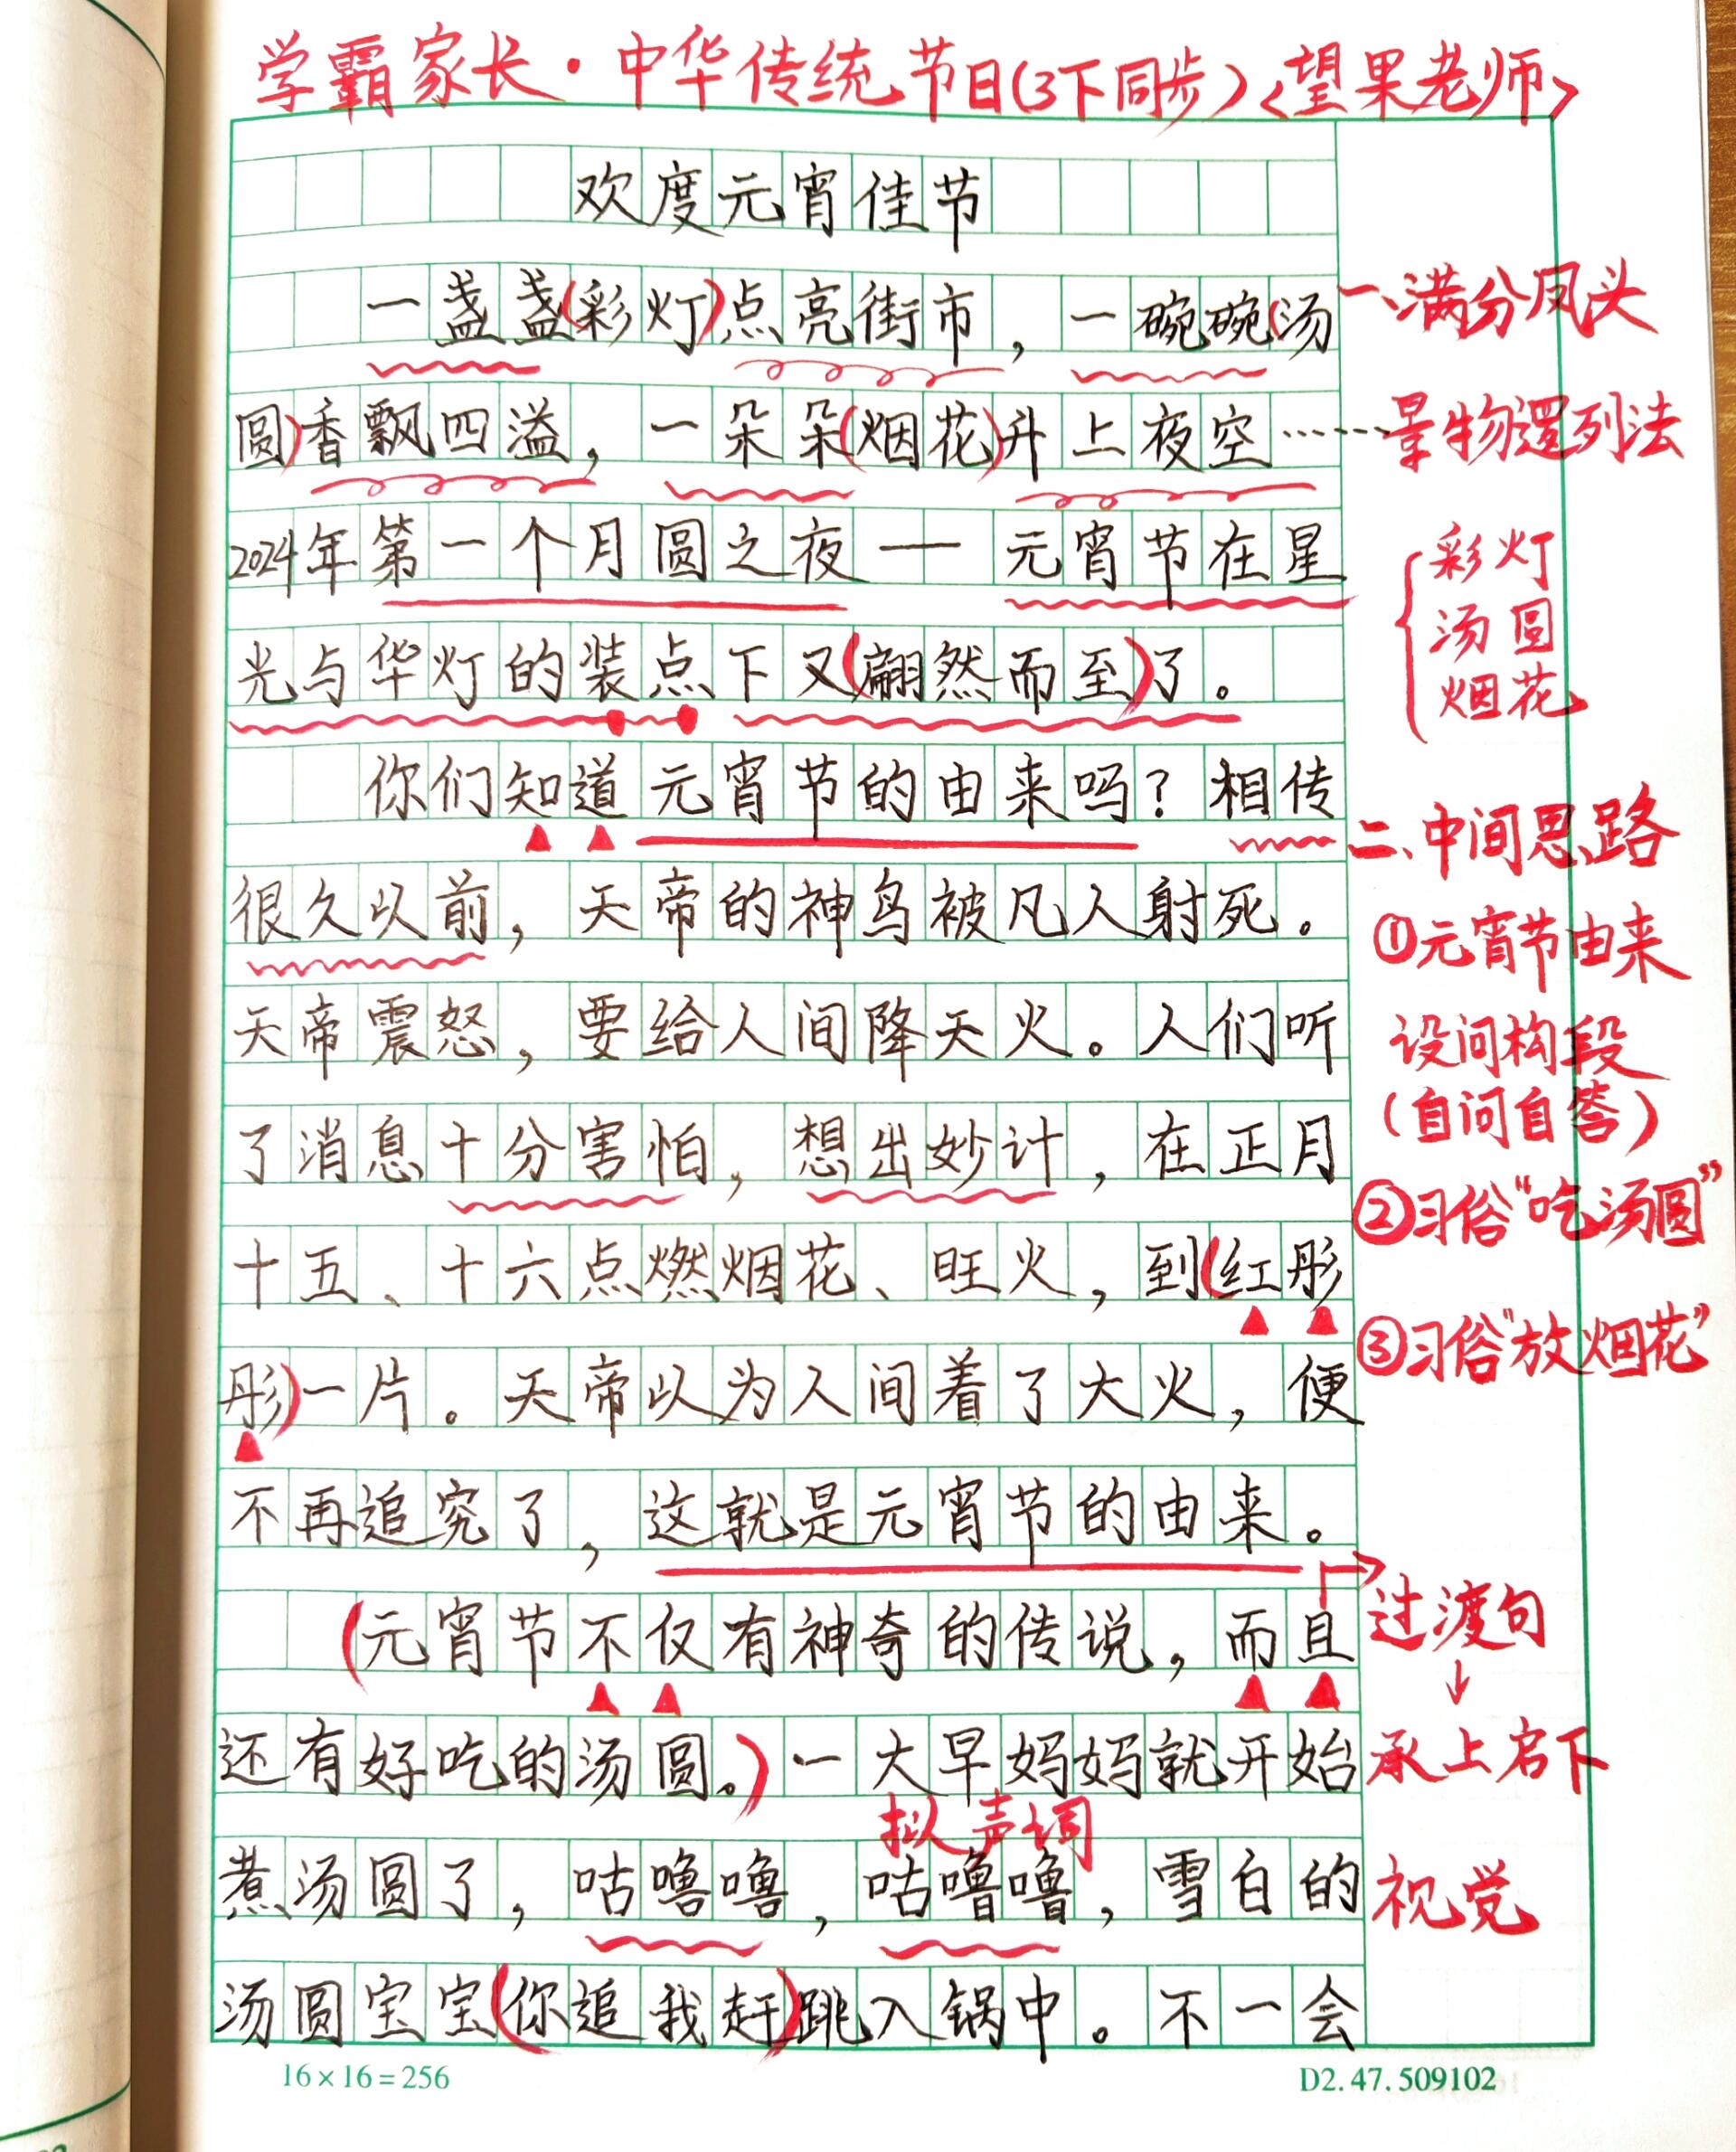 学霸家长·中华传统节日(3下同步)<望果老师>
欢度元宵佳节
一盏盏(彩灯)点亮街市，一碗碗(汤
一、满分凤头
圆)香飘四溢，一朵朵(烟花)升上夜空……
景物逻列法
2024年第一个月圆之夜——元宵节在星
彩灯
汤圆
烟花
光与华灯的装点下又(翩然而至)了。
你们知道元宵节的由来吗？相传
二、中间思路
很久以前，天帝的神鸟被凡人射死。
①元宵节由来
天帝震怒，要给人间降天火。人们听
设问构段
(自问自答)
了消息十分害怕，想出妙计，在正月
②习俗“吃汤圆”
十五、十六点燃烟花、旺火，到(红彤
③习俗“放烟花”
彤)一片。天帝以为人间着了大火，便
不再追究了，这就是元宵节的由来。
(元宵节不仅有神奇的传说，而且
过渡句
↓
还有好吃的汤圆。)一大早妈妈就开始
承上启下
拟声词
煮汤圆了，咕噜噜，咕噜噜，雪白的
视觉
汤圆宝宝(你追我赶)跳入锅中。不一会
16×16=256
D2.47.509102